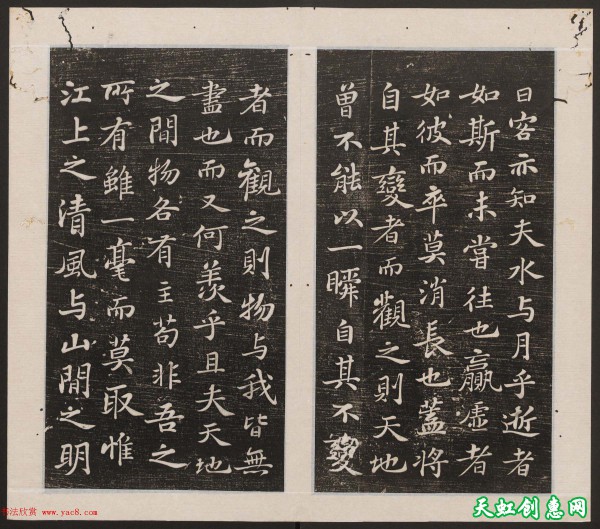 曰客亦知夫水与月乎逝者
如斯而未嘗往也贏虛者
如彼而卒莫消長也蓋將
自其變者而觀之則天地
曾不能以一瞬自其不變
者而觀之則物与我皆無
盡也而又何羨乎且夫天地
之間物各有主苟非吾之
所有雖一毫而莫取惟
江上之清風与山間之明
书法欣赏 www.yac8.com
天虹创惠网